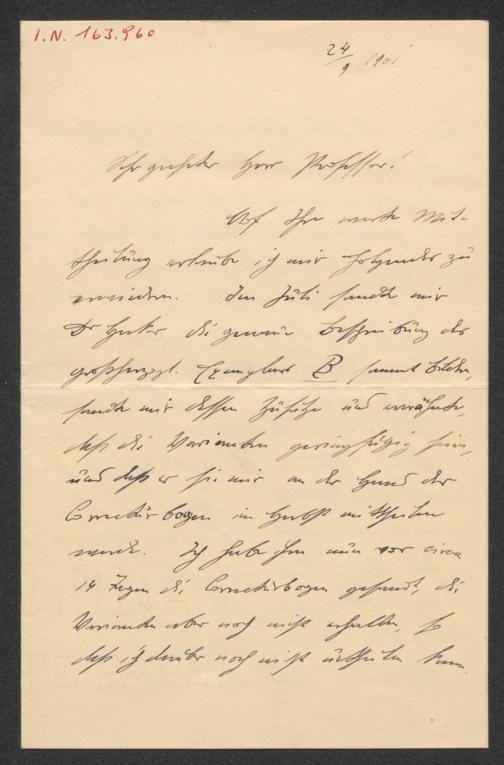 I.N. 163.960
24/9 1901
Sehr geehrter Herr Professor!
Auf Ihre werte Mit-
theilung erlaube ich mir folgendes zu
erwidern. Im Juli sandte mir
Dr die genaue Beschreibung des
großherzogl. Exemplars B sammt Bilder,
sandte mir dessen Zusätze und erwähnte,
daß die Varianten geringfügig seien,
und daß er sie mir an der Hand der
Correcturbogen im Herbst mittheilen
werde. Ich habe ihm nun vor circa
14 Tagen die Correcturbogen gesandt, die
Varianten aber noch nicht erhalten, so
daß ich darüber noch nicht urtheilen kann.